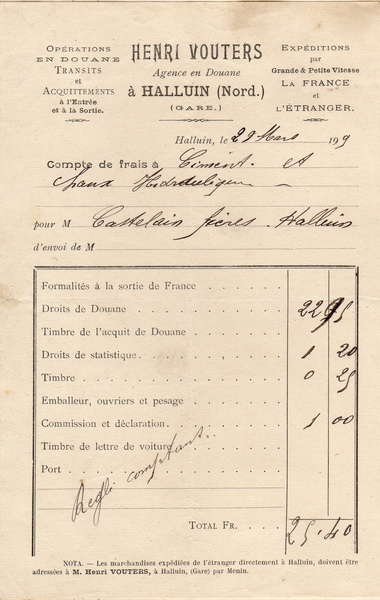 OPÉRATIONS
EN DOUANE
TRANSITS
et
ACQUITTEMENTS
à l'Entrée
et à la Sortie.
HENRI VOUTERS
Agence en Douane
à HALLUIN (Nord.)
(GARE.)
EXPÉDITIONS
par
Grande & Petite Vitesse
LA FRANCE
et
L'ÉTRANGER.
Halluin, le 29 Mars 199
Compte de frais à Ciment. et
Chaux Hidraulique
pour M Castelain frères. Halluin
d'envoi de M
Formalités à la sortie de France
Droits de Douane 22 95
Timbre de l'acquit de Douane
Droits de statistique 1 20
Timbre 0 25
Emballeur, ouvriers et pesage
Commission et déclaration 1 00
Timbre de lettre de voiture
Port
Réglé comptant
TOTAL FR. 25.40
NOTA. — Les marchandises expédiées de l'étranger directement à Halluin, doivent être
adressées à M. Henri VOUTERS, à Halluin, (Gare) par Menin.